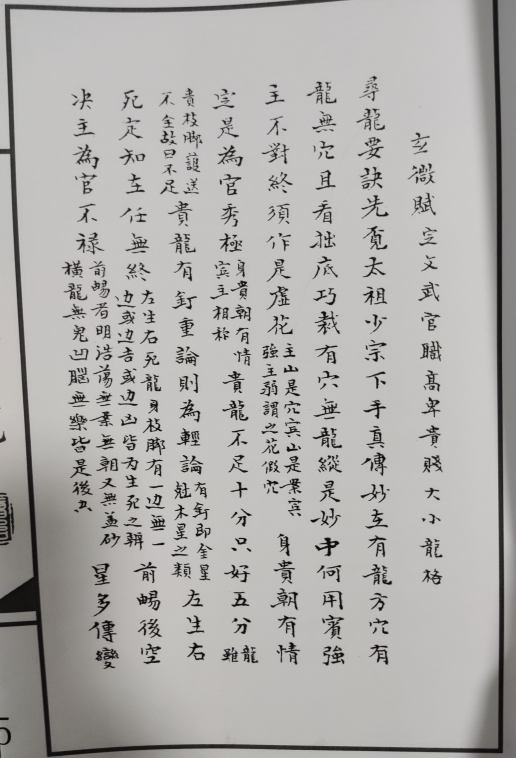 玄微賦定文武官職高卑貴賤大小龍格
尋龍要訣先覓太祖少宗下手真傳妙在有龍方穴有
龍無穴且看拙底巧裁有穴無龍縱是妙中何用賓強
主不對終須作是虛花主山是穴賓山是案賓強主弱謂之花假穴身貴朝有情
定是為官秀極身貴朝有情賓主相称貴龍不足十分只好五分雖龍
貴枝脚護送不全故曰不足貴龍有釘重論則為輕論有釘即金星尅木星之類左生右
死定知在任無終左生右死龍身枝脚有一边無一边或边吉或边凶皆为生死之辨前暘後空
决主為官不禄前暘者明浩蕩無案無朝又無盖砂橫龍無鬼凹腦無樂皆是後星多傳變